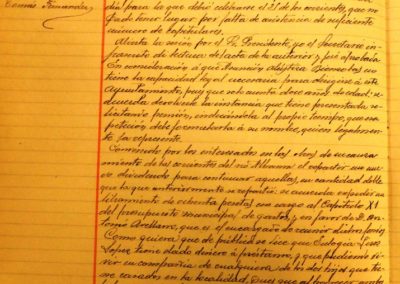 Tomás Fernandez
dia para la que debió celebrarse el 21 de los corrientes, que no
pudo tener lugar por falta de asistencia de suficiente
número de Capitulares.
Abierta la sesión por el Sr. Presidente, yo el Secretario
de lectura del acta de la anterior y fué aprobada.
En consideración a que
tiene la capacidad legal necesaria para dirigirse a este
Ayuntamiento, pues que solo cuenta doce años de edad: se
acuerda devolverle la instancia que tiene presentada
, indicándole al propio tiempo, que esa
petición debe formularla su madre, quien legalmente
la represente.
Convenido por los interesados en las obras de encauza
miento de las corrientes del rio el repartir un nue
vo dividendo para continuar aquellas, en cantidad doble
que la que anteriormente se repartió: se acuerda expedir un
libramiento de ochenta pesetas con cargo al Capítulo XI
del presupuesto municipal de gastos, en favor de D. An
tonio Arellano, que es el encargado de reunir dichos fondos
Como quiera, que de público se dice que Eulogia
Lopez tiene dado dinero a préstamo, y que pudiendo vi
vir en compañia de cualquiera de los dos hijos que tie
ne casados en la localidad,